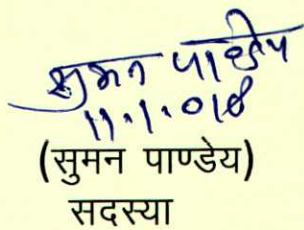 सुमन पाण्डेय
11.1.018
(सुमन पाण्डेय)
सदस्या